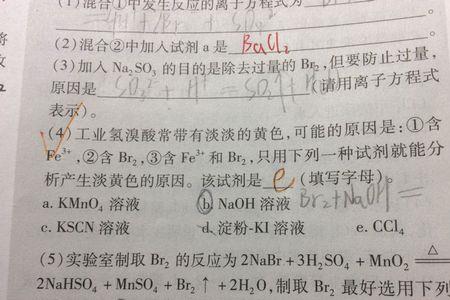 (1)混合①中发生反应的离子方程式为
(2)混合②中加入试剂 a 是 BaCl₂ 。
(3)加入 Na₂SO₃ 的目的是除去过量的 Br₂,但要防止过量,
原因是 (请用离子方程式
表示)。
(4)工业氢溴酸常带有淡淡的黄色,可能的原因是:①含
Fe³⁺,②含 Br₂,③含 Fe³⁺ 和 Br₂,只用下列一种试剂就能分
析产生淡黄色的原因。该试剂是 e (填写字母)。
a. KMnO₄ 溶液 b. NaOH 溶液 Br₂+NaOH=
c. KSCN 溶液 d. 淀粉-KI 溶液 e. CCl₄
(5)实验室制取 Br₂ 的反应为 2NaBr+3H₂SO₄+MnO₂ △
2NaHSO₄+MnSO₄+Br₂↑+2H₂O,制取 Br₂ 最好选用下列